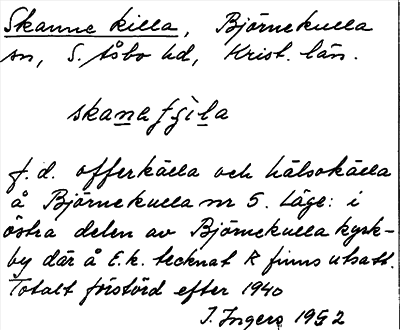 Skanne killa, Björnekulla
sn, S. Åsbo hd, Krist. län.
skana
f.d. offerkälla och hälsokälla
å Björnekulla nr 5. Läge: i
östra delen av Björnekulla kyrk-
by där å E.k. tecknat K finns utsatt.
Totalt förstörd efter 1940
J. Ingers 1952